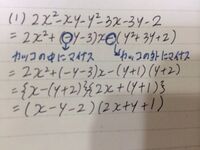 (1) 2x²-xy-y²-3x-3y-2
= 2x²+(-y-3)x-(y²+3y+2)
カッコの中にマイナス カッコの外にマイナス
= 2x²+(-y-3)x-(y+1)(y+2)
= {x-(y+2)}{2x+(y+1)}
= (x-y-2)(2x+y+1)